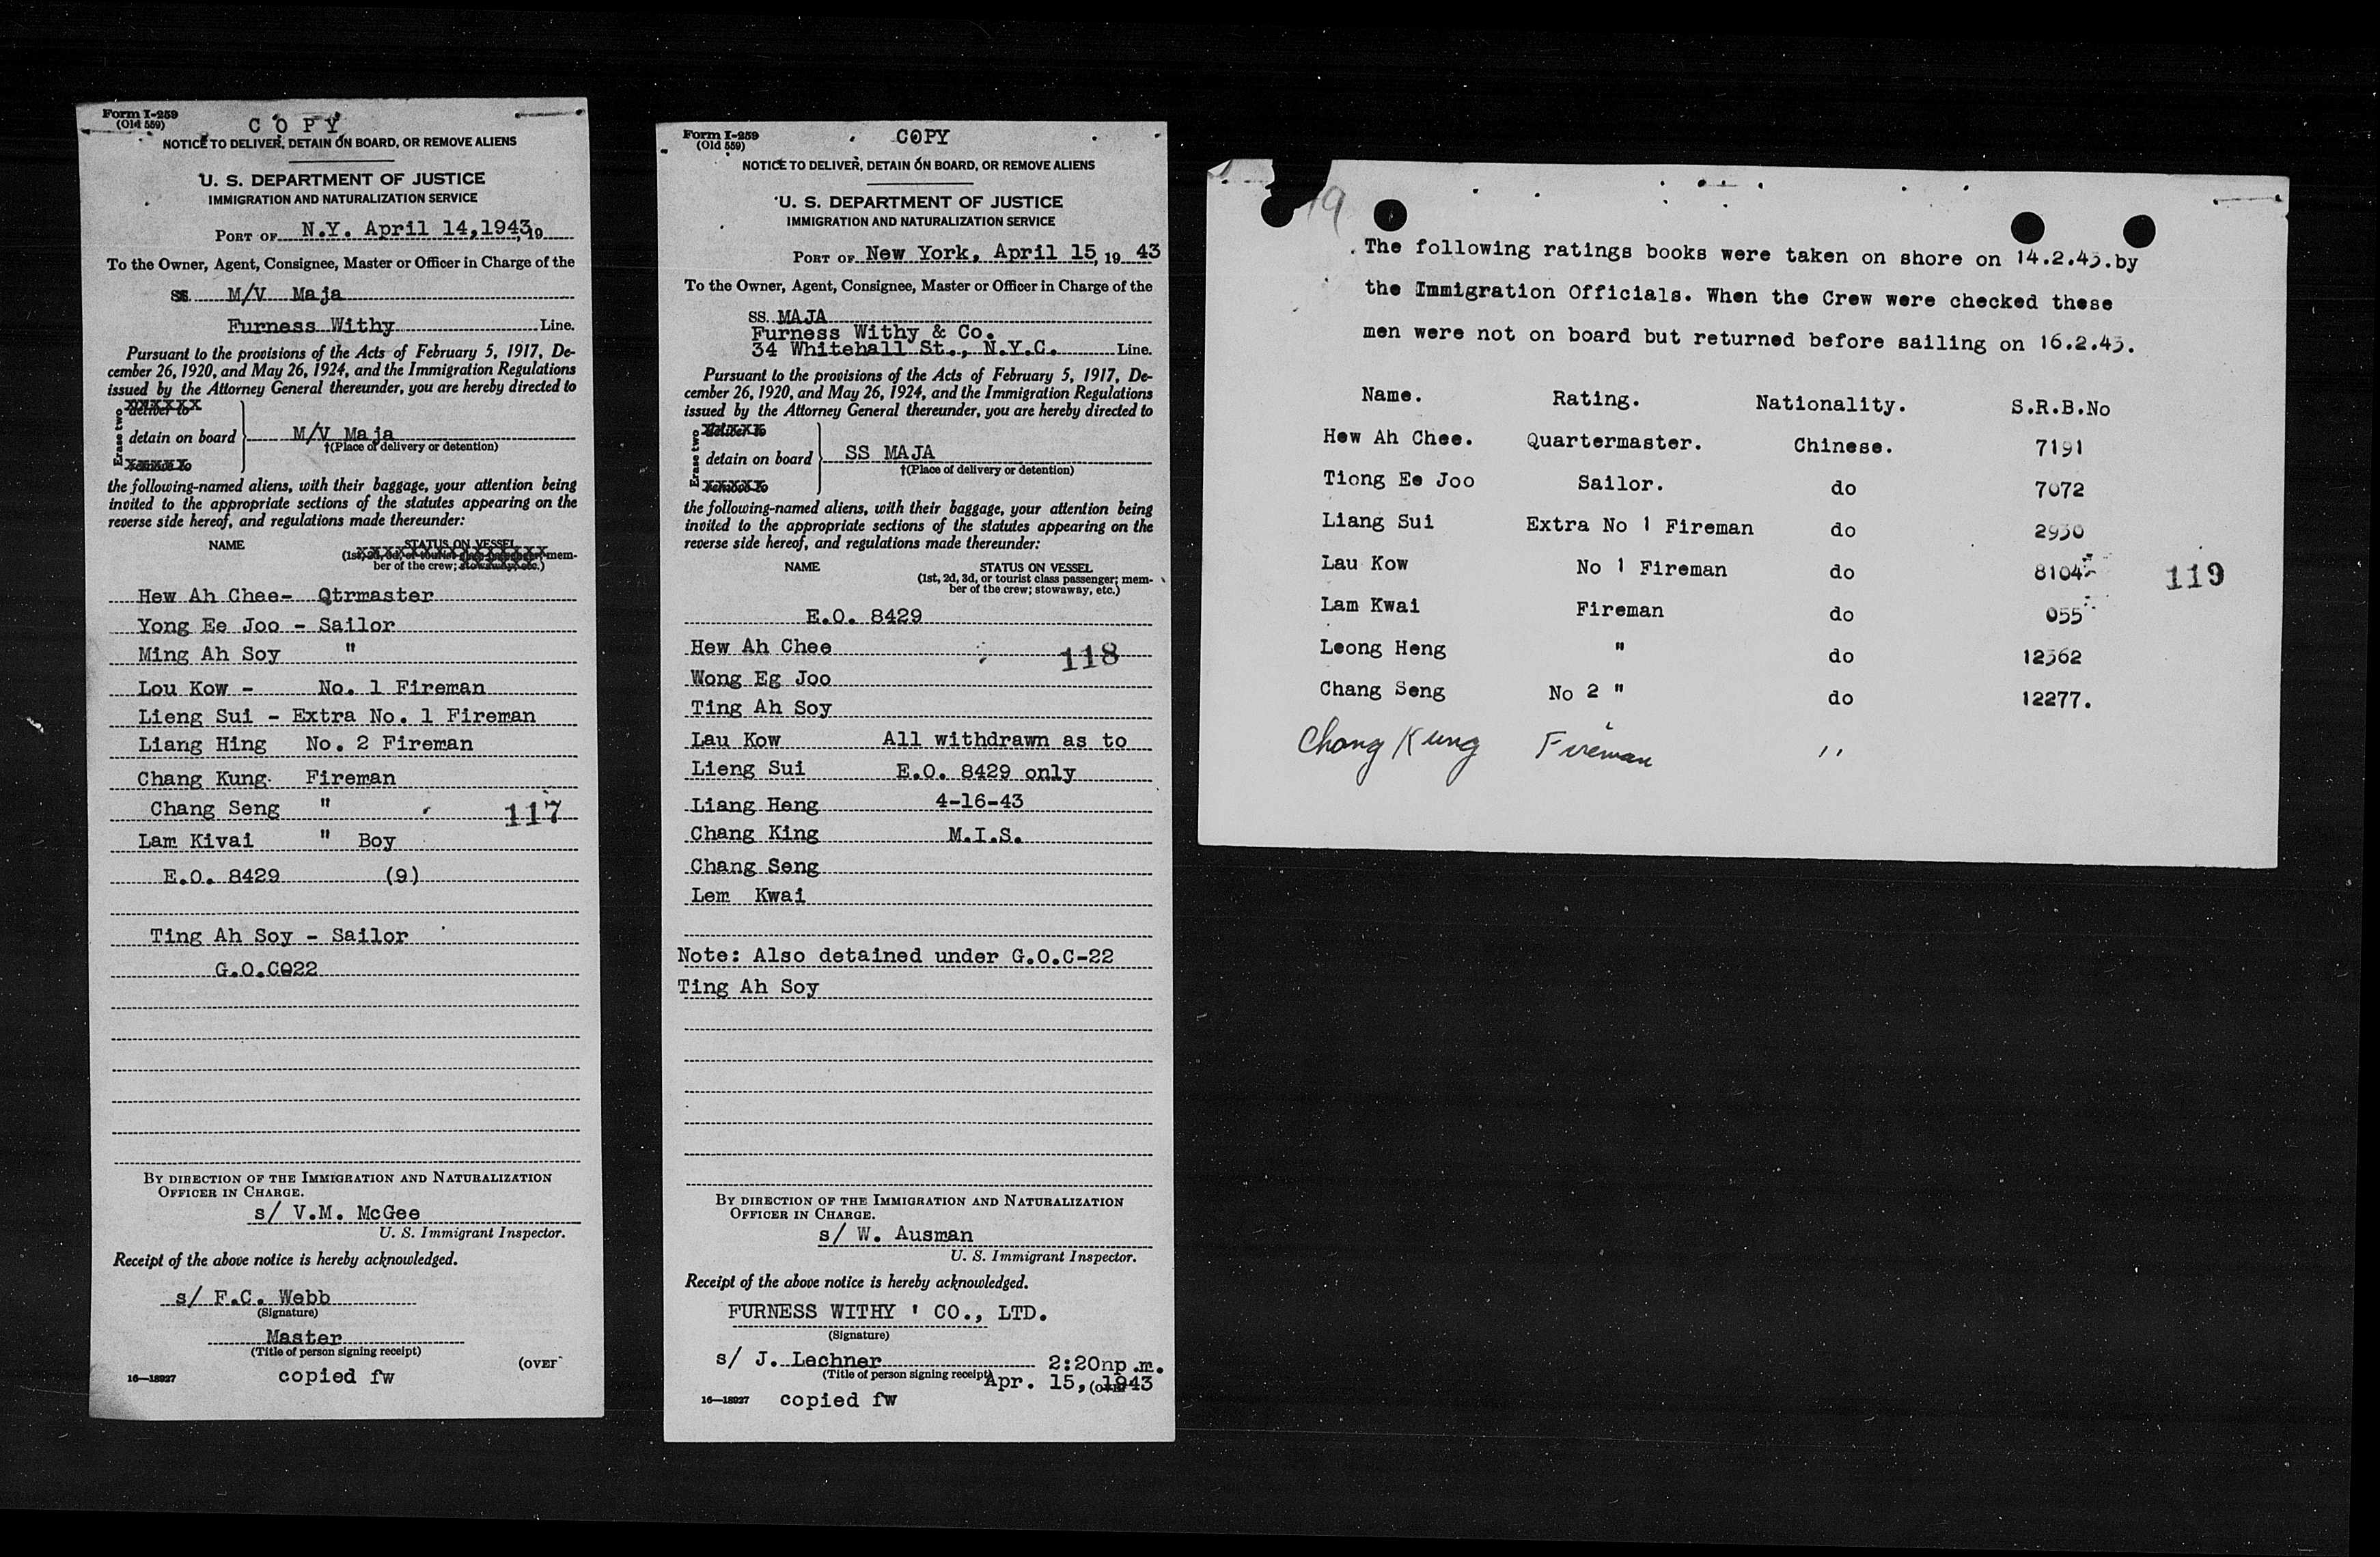 Form I-259
(Old 559)
COPY
NOTICE TO DELIVER, DETAIN ON BOARD, OR REMOVE ALIENS
U. S. DEPARTMENT OF JUSTICE
IMMIGRATION AND NATURALIZATION SERVICE
PORT OF N.Y. April 14,1943,19
To the Owner, Agent, Consignee, Master or Officer in Charge of the
SS. M/V Maja
Furness Withy Line.
Pursuant to the provisions of the Acts of February 5, 1917, De-
cember 26, 1920, and May 26, 1924, and the Immigration Regulations
issued by the Attorney General thereunder, you are hereby directed to
Erase two
deliver to
detain on board M/V Maja
†(Place of delivery or detention)
remove to
the following-named aliens, with their baggage, your attention being
invited to the appropriate sections of the statutes appearing on the
reverse side hereof, and regulations made thereunder:
NAME STATUS ON VESSEL
(1st, 2d, 3d, or tourist class passenger; mem-
ber of the crew; stowaway, etc.)
Hew Ah Chee- Qtrmaster
Yong Ee Joo - Sailor
Ming Ah Soy "
Lou Kow - No. 1 Fireman
Lieng Sui - Extra No. 1 Fireman
Liang Hing No. 2 Fireman
Chang Kung Fireman
Chang Seng " 117
Lam Kivai " Boy
E.O. 8429 (9)
Ting Ah Soy - Sailor
G.O.CO22
BY DIRECTION OF THE IMMIGRATION AND NATURALIZATION
OFFICER IN CHARGE.
s/ V.M. McGee
U. S. Immigrant Inspector.
Receipt of the above notice is hereby acknowledged.
s/ F.C. Webb
(Signature)
Master
(Title of person signing receipt)
(OVER
16—18927 copied fw
Form I-259
(Old 559)
COPY
NOTICE TO DELIVER, DETAIN ON BOARD, OR REMOVE ALIENS
U. S. DEPARTMENT OF JUSTICE
IMMIGRATION AND NATURALIZATION SERVICE
PORT OF New York, April 15, 19 43
To the Owner, Agent, Consignee, Master or Officer in Charge of the
SS. MAJA
Furness Withy & Co.
34 Whitehall St., N.Y.C. Line.
Pursuant to the provisions of the Acts of February 5, 1917, De-
cember 26, 1920, and May 26, 1924, and the Immigration Regulations
issued by the Attorney General thereunder, you are hereby directed to
Erase two
deliver to
detain on board SS MAJA
†(Place of delivery or detention)
remove to
the following-named aliens, with their baggage, your attention being
invited to the appropriate sections of the statutes appearing on the
reverse side hereof, and regulations made thereunder:
NAME STATUS ON VESSEL
(1st, 2d, 3d, or tourist class passenger; mem-
ber of the crew; stowaway, etc.)
E.O. 8429
Hew Ah Chee 118
Wong Eg Joo
Ting Ah Soy
Lau Kow All withdrawn as to
Lieng Sui E.O. 8429 only
Liang Heng 4-16-43
Chang King M.I.S.
Chang Seng
Lem Kwai
Note: Also detained under G.O.C-22
Ting Ah Soy
BY DIRECTION OF THE IMMIGRATION AND NATURALIZATION
OFFICER IN CHARGE.
s/ W. Ausman
U. S. Immigrant Inspector.
Receipt of the above notice is hereby acknowledged.
FURNESS WITHY ' CO., LTD.
(Signature)
s/ J. Lechner 2:20np.m.
(Title of person signing receipt)
Apr. 15, 1943
16—18927 copied fw
19
The following ratings books were taken on shore on 14.2.43.by
the Immigration Officials. When the Crew were checked these
men were not on board but returned before sailing on 16.2.43.
Name. Rating. Nationality. S.R.B.No
Hew Ah Chee. Quartermaster. Chinese. 7191
Tiong Ee Joo Sailor. do 7072
Liang Sui Extra No 1 Fireman do 2930
Lau Kow No 1 Fireman do 8104
119
Lam Kwai Fireman do 055
Leong Heng " do 12362
Chang Seng No 2 " do 12277.
Chong Kung Fireman "